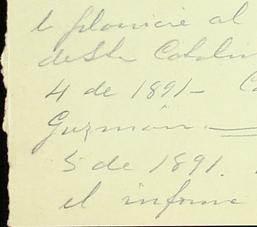 al
de Sta Catalin
4 de 1891-
Guzmán.
5 de 1891.
el informe